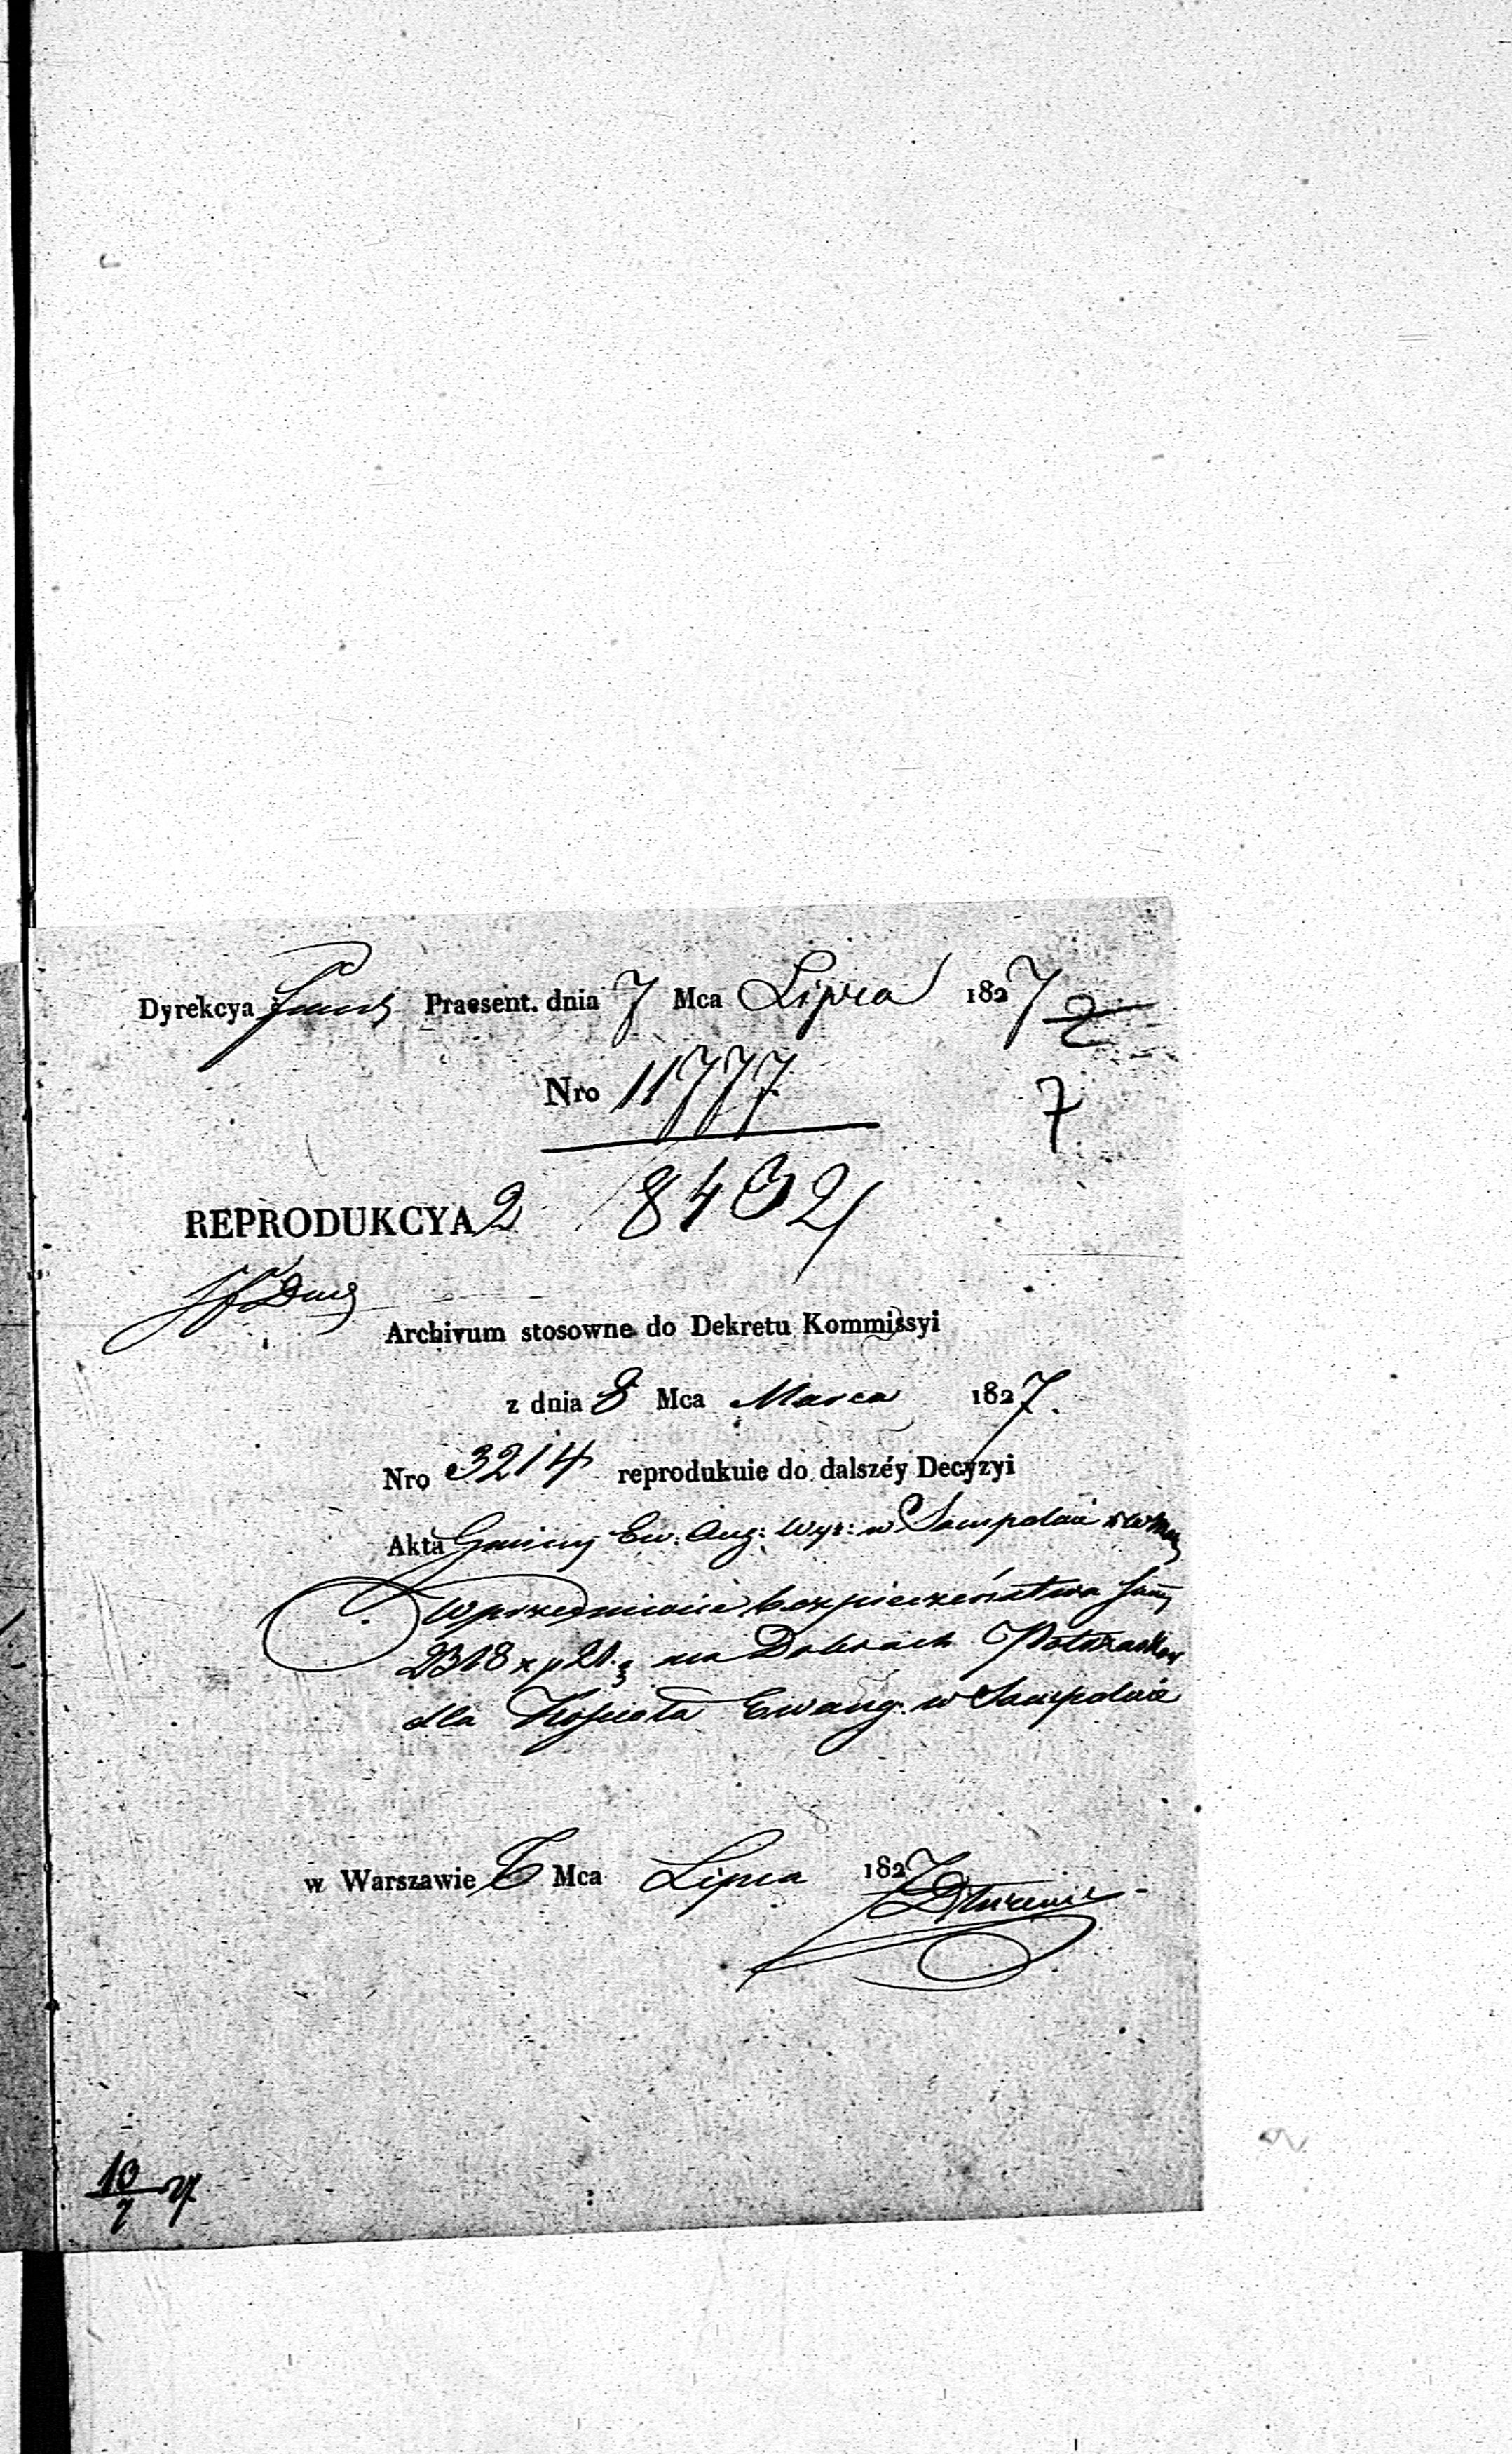 Dyrekcya Praesent. dnia 7 Mca Lipca 1827 2
Nro 11777 7
8432
REPRODUKCYA 2
Archivum stosowne do Dekretu Kommissyi
z dnia 8 Mca Marca 1827.
Nro 3214 reprodukuie do dalszéy Decyzyi
Akta Gminy Ew: Aug: Wyz: w Sempolnie
W przedmiocie bezpieczeństwa
na Dobrach
dla Kościoła Ewang. w Sempolnie
w Warszawie 6 Mca Lipca 1827
10
7